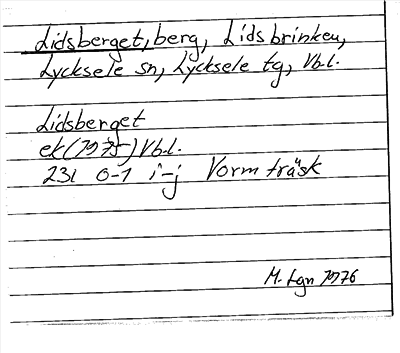 Lidsberget, berg, Lidsbrinken,
Lycksele sn, Lycksele tg, Vbl.
Lidsberget
ek (1975) Vbl.
23I 0-1 i-j Vormträsk
M. Lgn 1976